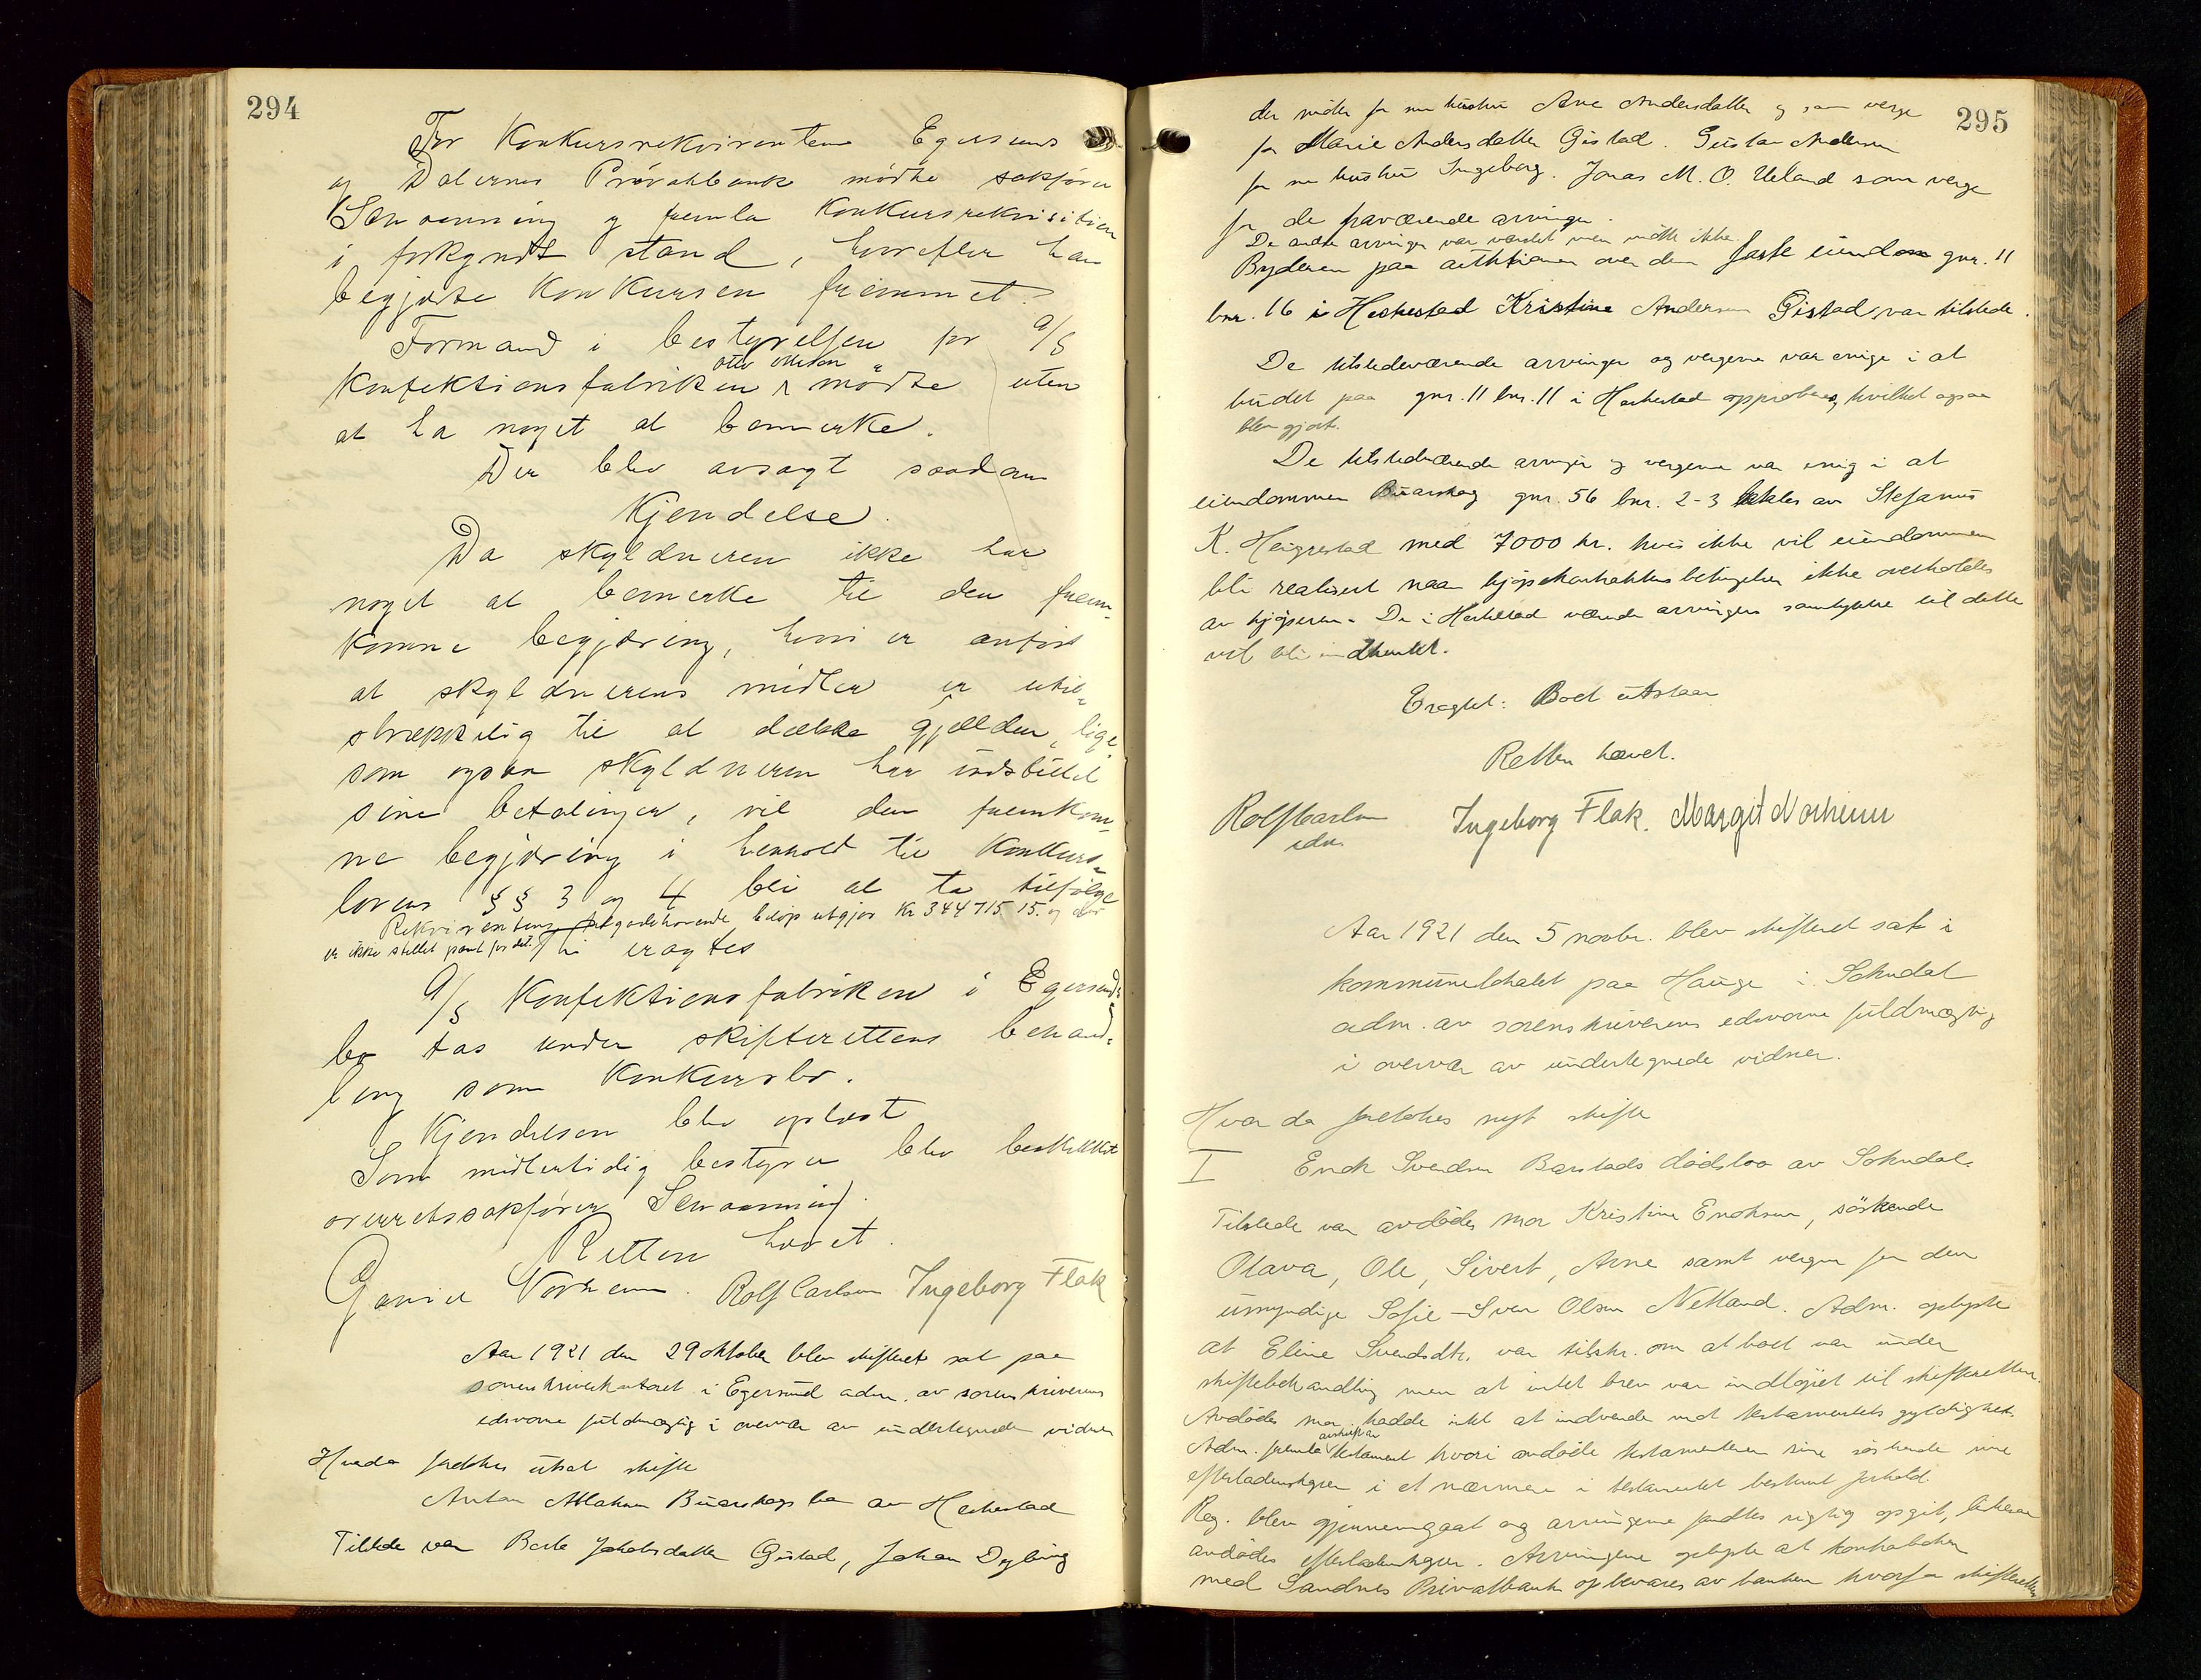 294
For Konkursrekvirenten Egersunds
og Dalernes Privatbank mødte sakfører
Schanning og fremla Konkursrekvisition
i forkyndt stand, hvorefter han
begjærte Konkursen fremmet.
Formand i bestyrelsen for A/S
otto
Konfektionsfabriken mødte uten
at ha noget at bemerke.
Der blev avsagt saadan
Kjendelse.
Da skyldneren ikke har
noget at bemerke til den frem-
komne begjæring, hvori er anført
at skyldnerens midler er util-
strækkelig til at dække gjælden, lige
som ogsaa skyldneren har indstillet
sine betalinger, vil den fremkom-
ne begjæring i henhold til Konkurs-
lovens §§ 3 og 4 bli at ta tilfølge
Rekvirentens tilgodehavende beløp utgjør Kr 344715.15. og der
er ikke stillet pant for det. Thi eragtes
A/S Konfektionsfabriken i Egersunds
bo tas under skifterettens behand-
ling som Konkursbo.
Kjendelsen blev oplæst
Som midlertidig bestyrer blev beskikket
overretssakfører Schanning.
Retten hævet.
Norheim. Rolf Carlsen Ingeborg Flak
Aar 1921 den 29 oktober blev skifteret sat paa
sorenskriverkontoret i Egersund adm. av sorenskriverens
edsvorne fuldmægtig i overvær av undertegnede vidner
Hvorda foretokes utsat skifte
Anton Buarskogs bo av Heskestad
Tilstede var Berte Jakobsdatter Gistad, Johan Dybing
295
der møtte for sin hustru Ane Andersdatter og som verge
for Marie Andersdatter Gistad. Gustav Andersen
for sin hustru Ingeborg. Jonas M. O. Ueland som verge
for de fraværende arvinger.
De andre arvinger var varslet men møtte ikke.
Byderen paa auktionen over den faste eiendom gnr. 11
bnr. 16 i Heskestad Kristine Andersen Gistad var tilstede.
De tilstedeværende arvinger og vergerne var enige i at
budet paa gnr. 11 bnr. 11 i Heskestad approberes, hvilket ogsaa
blev gjort.
De tilstedeværende arvinger og vergerne var enig i at
eiendommen Buarskog gnr. 56 bnr. 2-3 av Stefanus
K. Heigrestad med 7000 kr. hvis ikke vil eiendommen
bli realisert naar kjøpekontraktens betingelser ikke overholdes
av kjøperen. De i Heskestad værende arvingers samtykke til dette
vil bli indhentet.
Eragtet: Boet utstaar
Retten hævet.
Rolf Carlsen
edsv.
Ingeborg Flak. Margit Norheim
Aar 1921 den 5 novbr. blev skifteret sat i
kommunelokalet paa Hauge i Sokndal
adm. av sorenskriverens edsvorne fuldmægtig
i overvær av undertegnede vidner.
Hvor da foretokes nyt skifte
I Enok Svendsen Barstads dødsbo av Sokndal.
Tilstede var avdødes mor Kristine Enoksen, søskende
Olava, Ole, Sivert, Arne samt vergen for den
umyndige Sofie - Sven Olsen Netland. Adm. oplyste
at Eline Svendsdtr. var tilskr. om at boet var under
skiftebehandling men at intet brev var indløpet til skifteretten.
Avdødes mor hadde intet at indvende mot testamentets gyldighet.
avskrift av
Adm. fremla testament hvori avdøde testamenterer sine søskende sine
efterladenskaper i et nærmere i testamentet bestemt forhold.
Reg. blev gjennemgaat og arvingerne fandtes rigtig opgit, likesaa
avdødes efterladenskaper. Arvingerne oplyste at kontraboken
med Sandnes Privatbank opbevares av banken hvorfor skifteretten